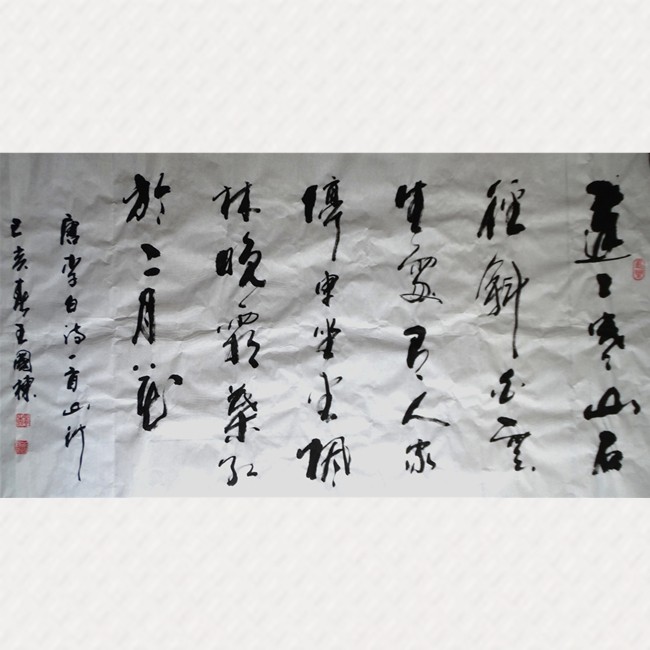 遠上寒山石
徑斜白雲
生處有人家
停車坐愛楓
林晚霜葉紅
於二月花
唐李白诗一首山行
己亥春王國棟